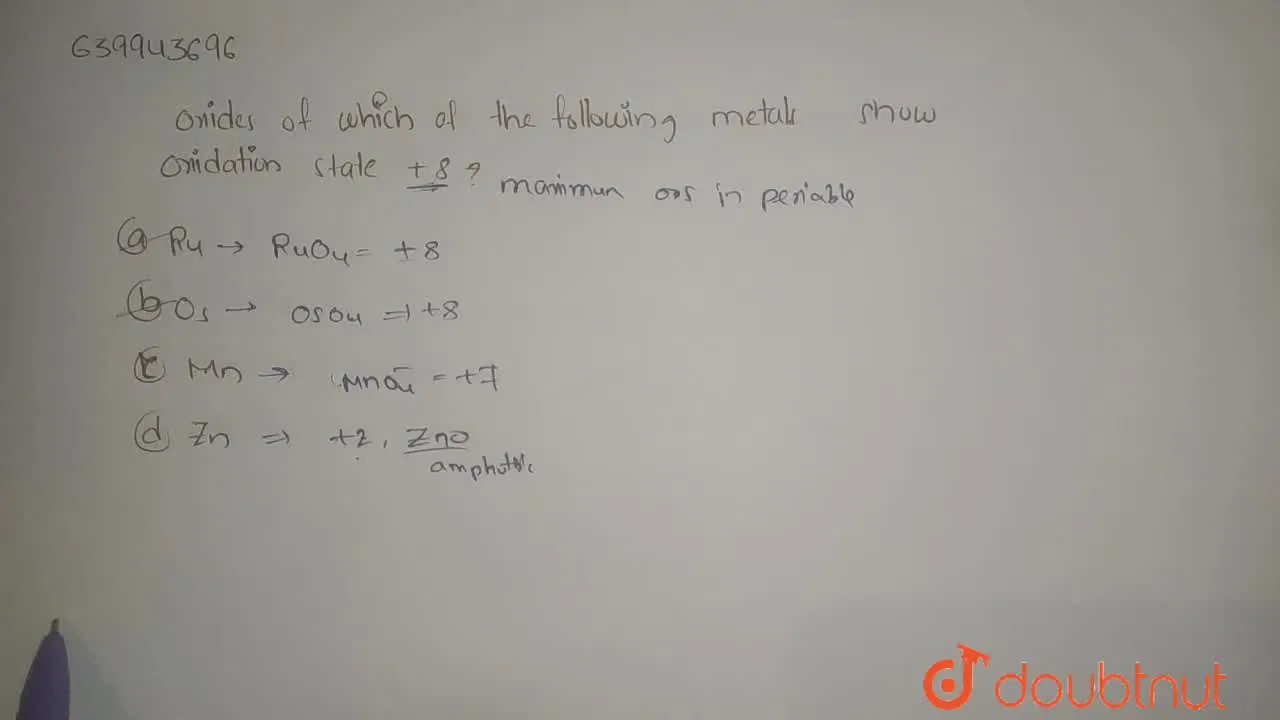 639943696
oxides of which of the following metals show
oxidation state +8 ? maximum o.s in periable
(a) Ru → RuO4 = +8
(b) Os → OsO4 ⇒ +8
(c) Mn → MnO4⁻ = +7
(d) Zn ⇒ +2, ZnO
amphoteric
doubtnut